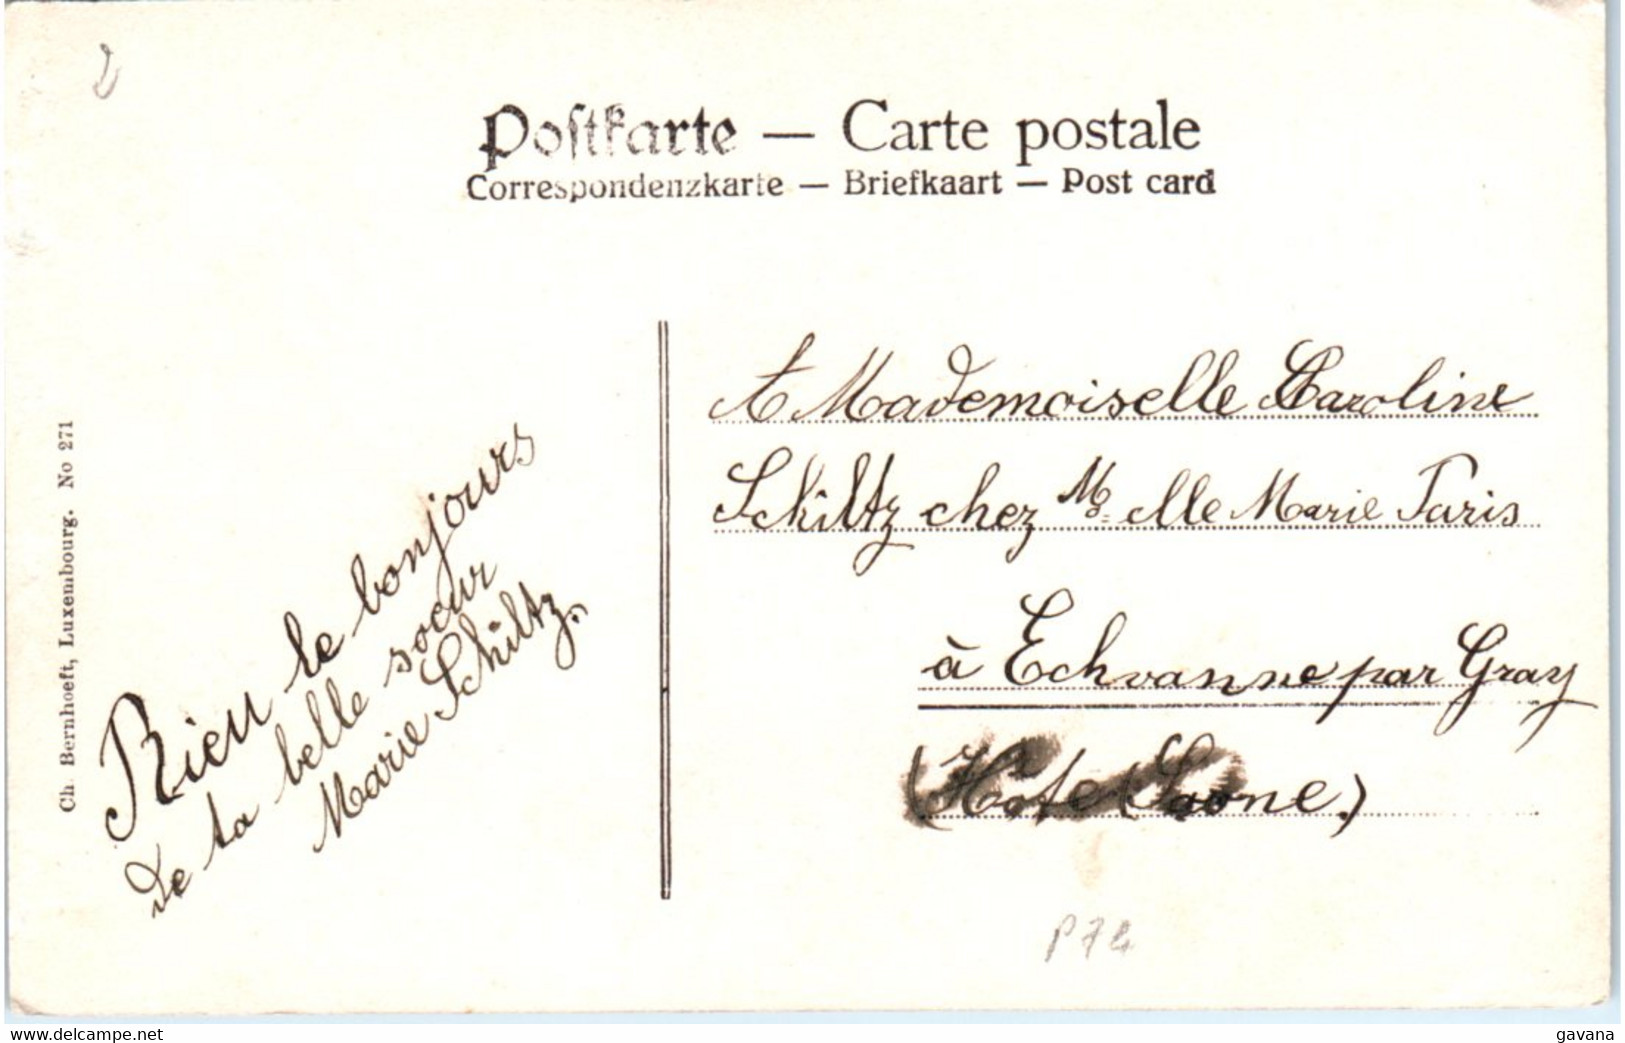 Postkarte — Carte postale
Correspondenzkarte — Briefkaart — Post card
Ch. Bernhoeft, Luxembourg. No 271
Rien le bonjours
de ta belle soeur
Marie Schiltz.
A Mademoiselle Caroline
Schiltz chez M elle Marie Paris
à Echvanne par Gray
(Hote Saone)
P74
www.delcampe.net
gavana